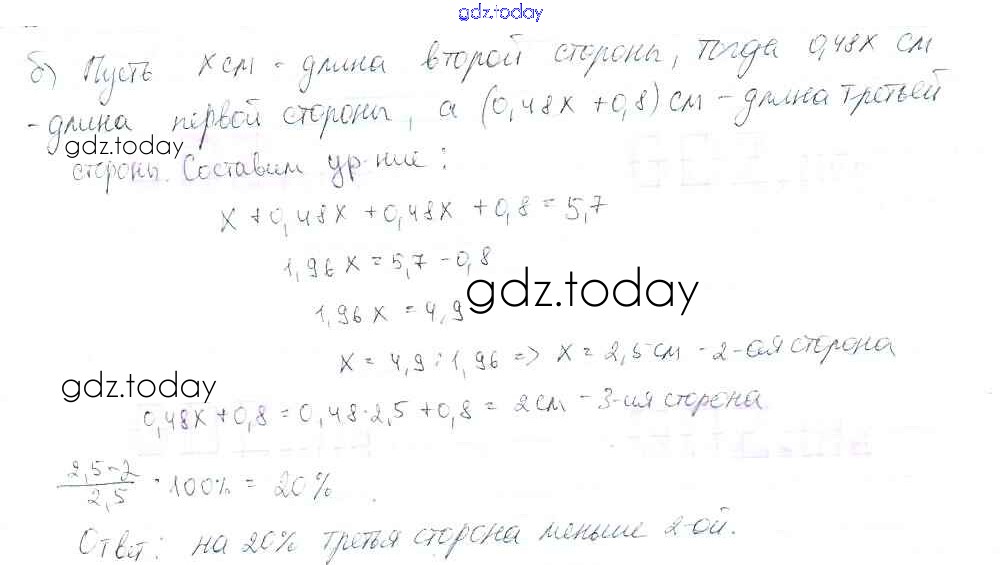 gdz.today
б) Пусть x см - длина второй стороны, тогда 0,48x см
- длина первой стороны, а (0,48x + 0,8) см - длина третьей
gdz.today
стороны. Составим ур-ние:
x + 0,48x + 0,48x + 0,8 = 5,7
1,96x = 5,7 - 0,8
gdz.today
1,96x = 4,9
x = 4,9 : 1,96 => x = 2,5 см - 2-ая сторона
gdz.today
0,48x + 0,8 = 0,48·2,5 + 0,8 = 2 см - 3-ия сторона
2,5 - 2
2,5
· 100% = 20%.
Ответ: на 20% третья сторона меньше 2-ой.